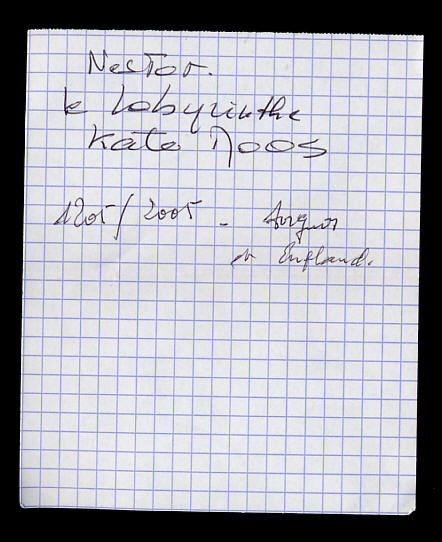 Nector.
le labyrinthe
Kate Moos
1205/2005 - August
in England.